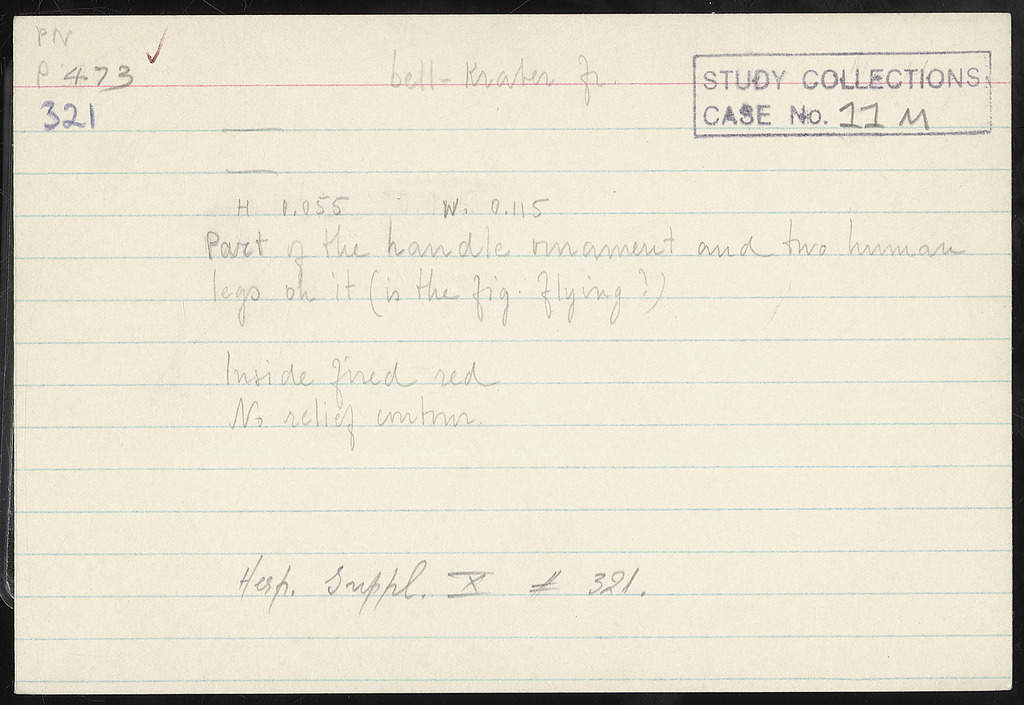 PN
P 473
321
bell-Krater fr.
STUDY COLLECTIONS
CASE No. 11 M
H 0.055 W. 0.115
Part of the handle ornament and two human
legs on it (is the fig. flying?)
Inside fired red
No relief contour.
Hesp. Suppl. X # 321.